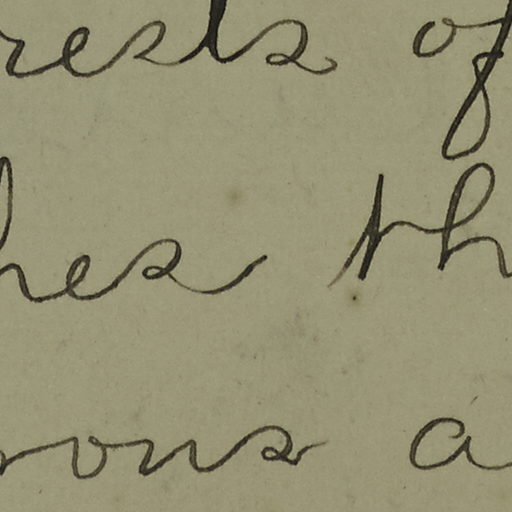 rests of
hes th
rous a